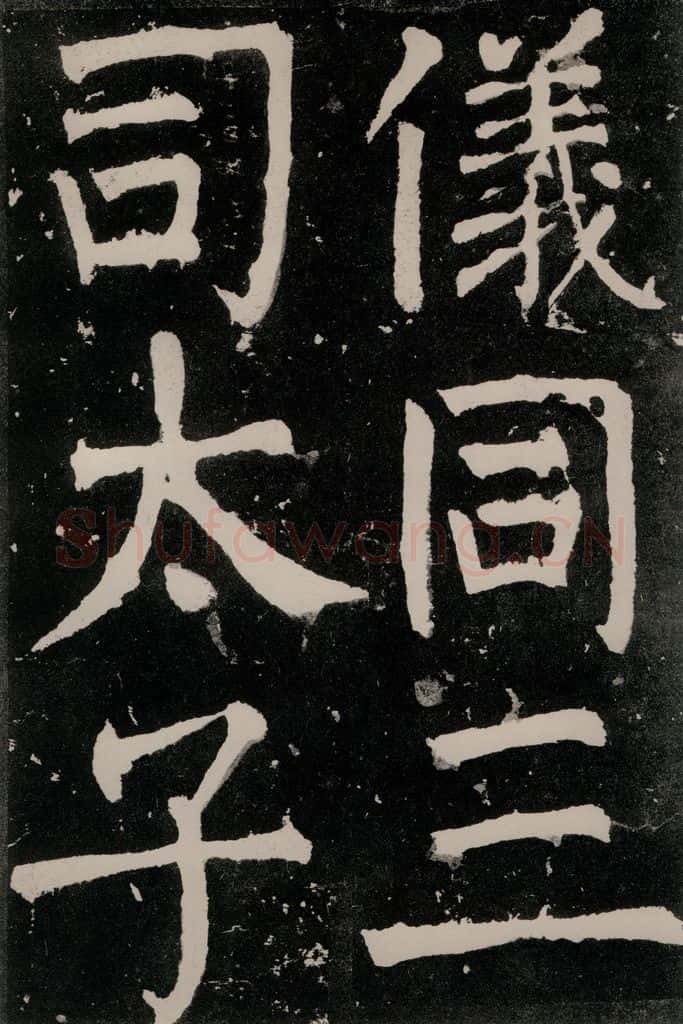 儀同三
司太子
Shufawang.CN